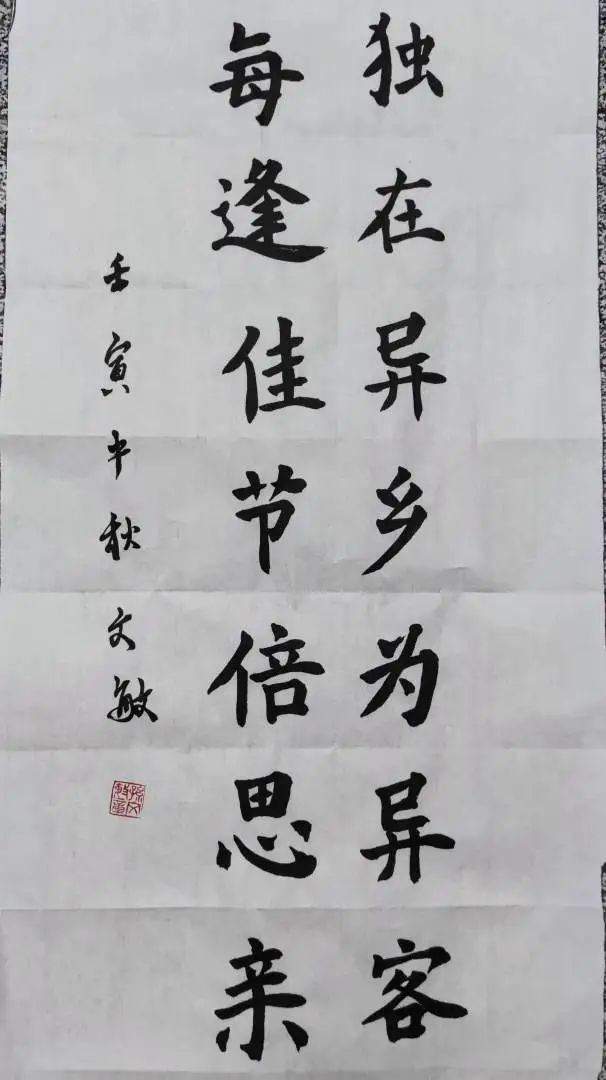 独在异乡为异客
每逢佳节倍思亲
壬寅中秋文敏